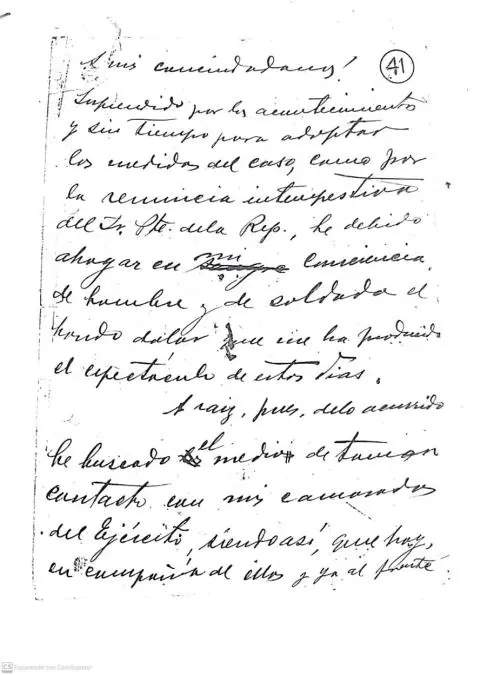 A mis conciudadanos!
41
Suspendido por los acontecimientos
y sin tiempo para adoptar
las medidas del caso, como por
la renuncia intempestiva
del Sr. Pte. de la Rep., he debido
ahogar en mi sangre conciencia
de hombre y de soldado el
hondo dolor que me ha producido
el espectáculo de estos días.
A raiz, pues, de lo ocurrido
he buscado el medio de tomar
contacto con mis camaradas
del Ejército, siendo así, que hoy,
en compañía de ellos y ya al frente
CS